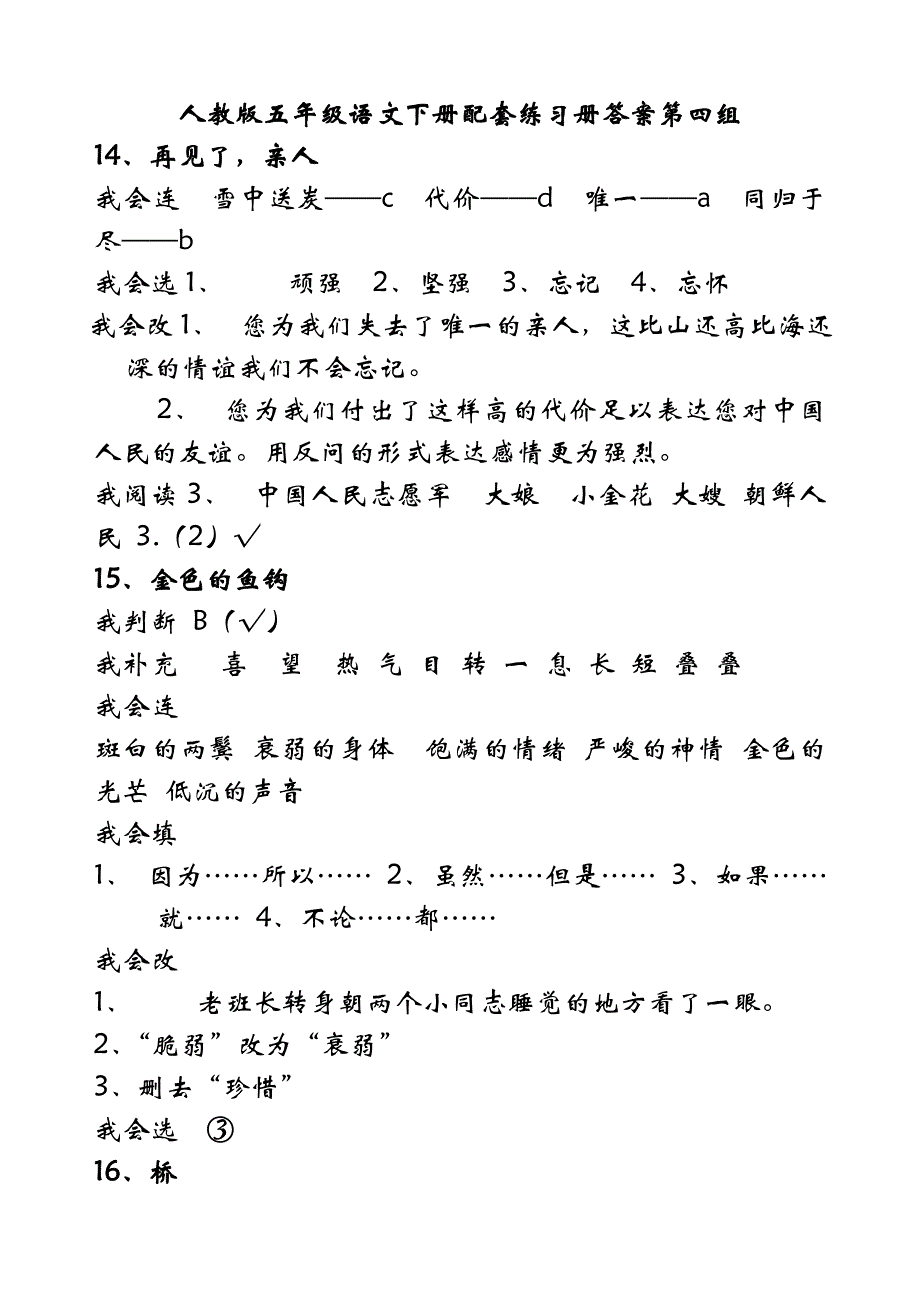 人教版五年级语文下册配套练习册答案第四组
14、再见了，亲人
我会连 雪中送炭——c 代价——d 唯一——a 同归于
尽——b
我会选1、 顽强 2、坚强 3、忘记 4、忘怀
我会改1、 您为我们失去了唯一的亲人，这比山还高比海还
深的情谊我们不会忘记。
2、 您为我们付出了这样高的代价足以表达您对中国
人民的友谊。用反问的形式表达感情更为强烈。
我阅读3、 中国人民志愿军 大娘 小金花 大嫂 朝鲜人
民 3.（2）√
15、金色的鱼钩
我判断 B（√）
我补充 喜 望 热 气 目 转 一 息 长 短 叠 叠
我会连
斑白的两鬓 衰弱的身体 饱满的情绪 严峻的神情 金色的
光芒 低沉的声音
我会填
1、 因为……所以…… 2、虽然……但是…… 3、如果……
就…… 4、不论……都……
我会改
1、 老班长转身朝两个小同志睡觉的地方看了一眼。
2、“脆弱”改为“衰弱”
3、删去“珍惜”
我会选 ③
16、桥